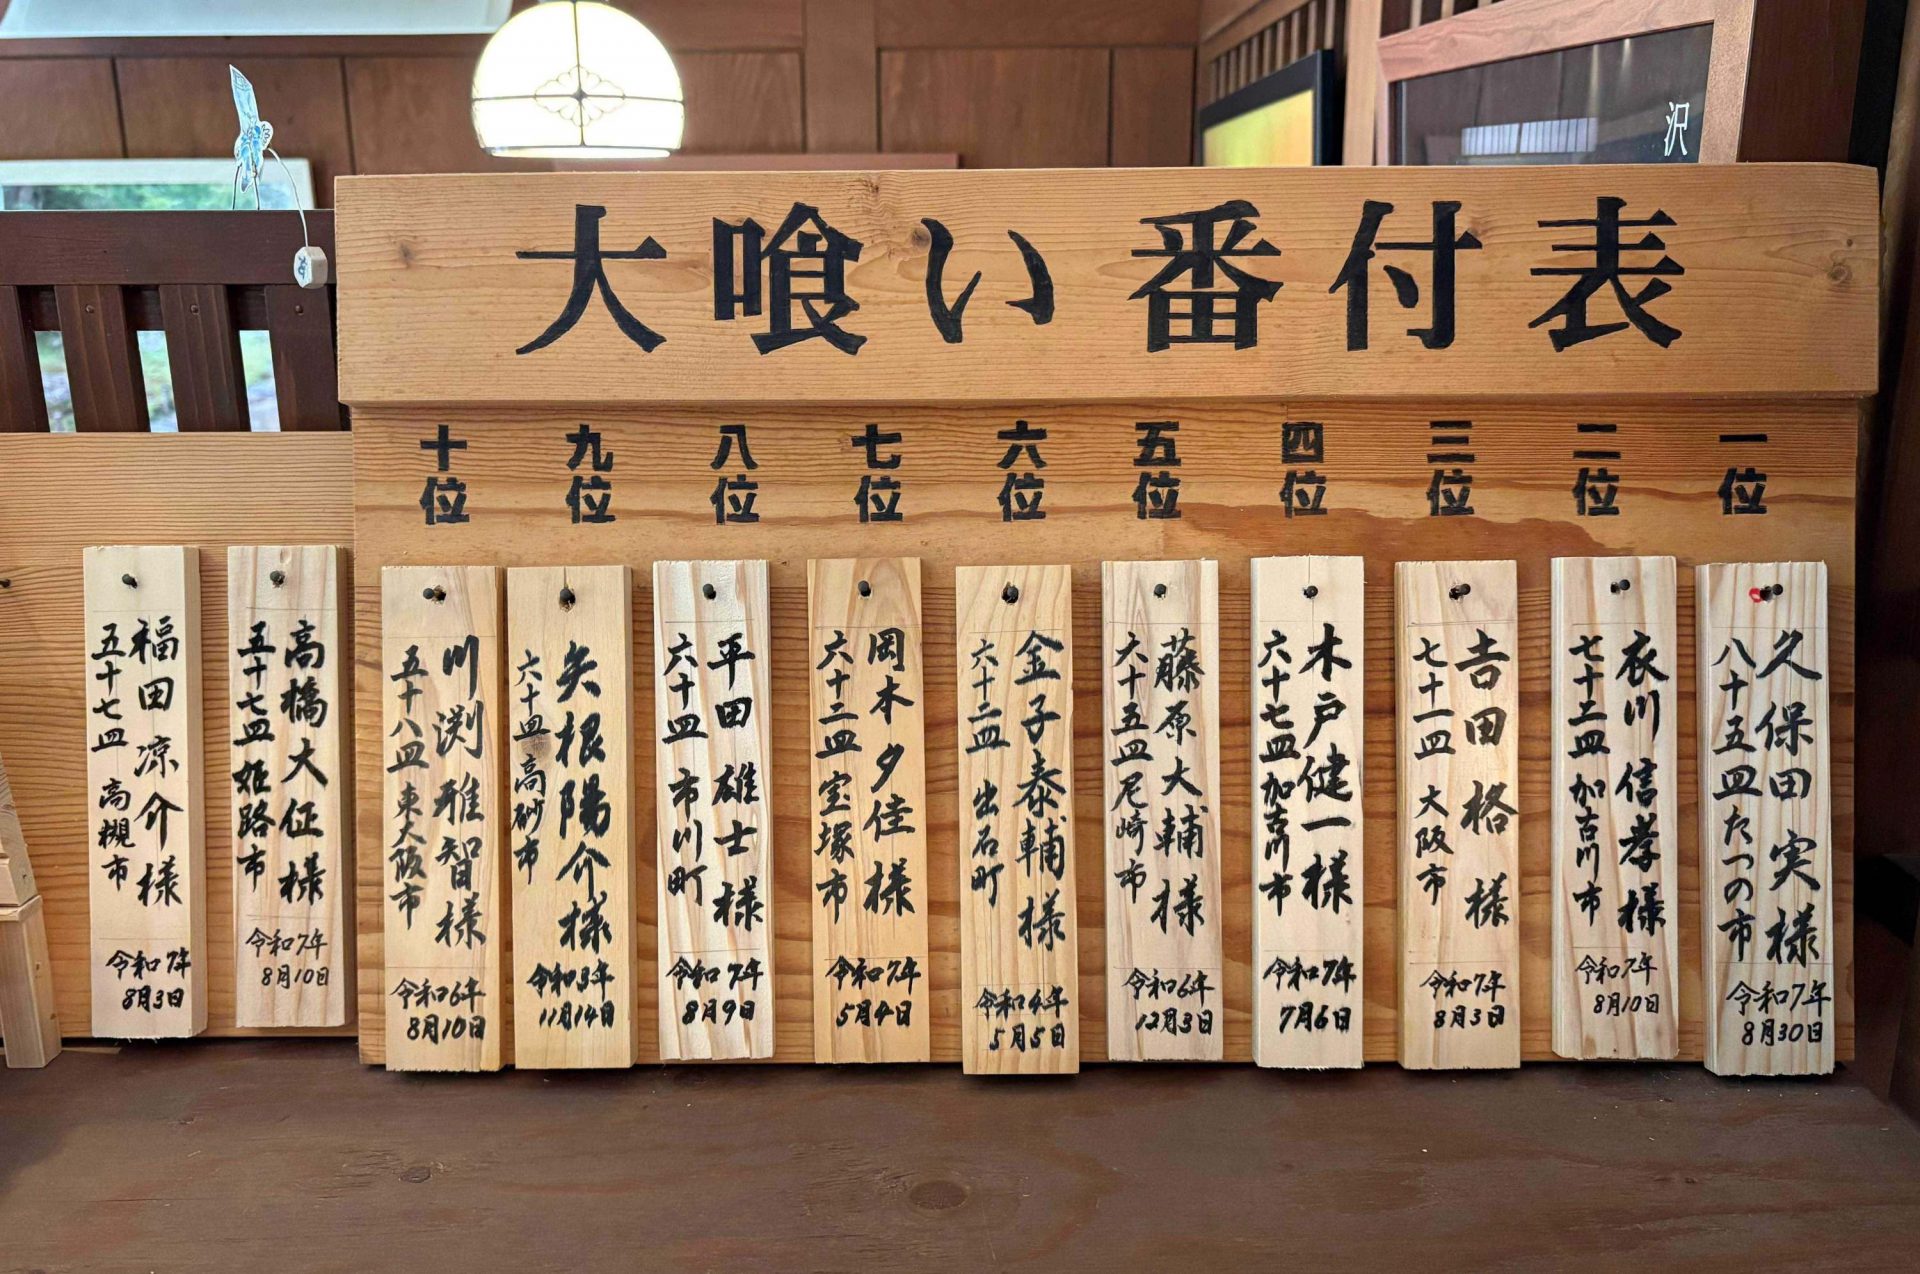 沢
大喰い番付表
一位
久保田実様
八十五皿たつの市
令和7年
8月30日
二位
衣川信孝様
七十二皿加古川市
令和7年
8月10日
三位
吉田格様
七十一皿 大阪市
令和7年
8月3日
四位
木戸健一様
六十七皿加古川市
令和7年
7月6日
五位
藤原大輔様
六十五皿尼崎市
令和6年
12月3日
六位
金子泰輔様
六十二皿 出石町
令和4年
5月5日
七位
岡本夕佳様
六十二皿宝塚市
令和7年
5月4日
八位
平田雄士様
六十皿 市川町
令和7年
8月9日
九位
矢根陽介様
六十皿高砂市
令和3年
11月14日
十位
川渕雅智様
五十八皿東大阪市
令和6年
8月10日
高橋大征様
五十七皿姫路市
令和7年
8月10日
福田凉介様
五十七皿 高槻市
令和7年
8月3日